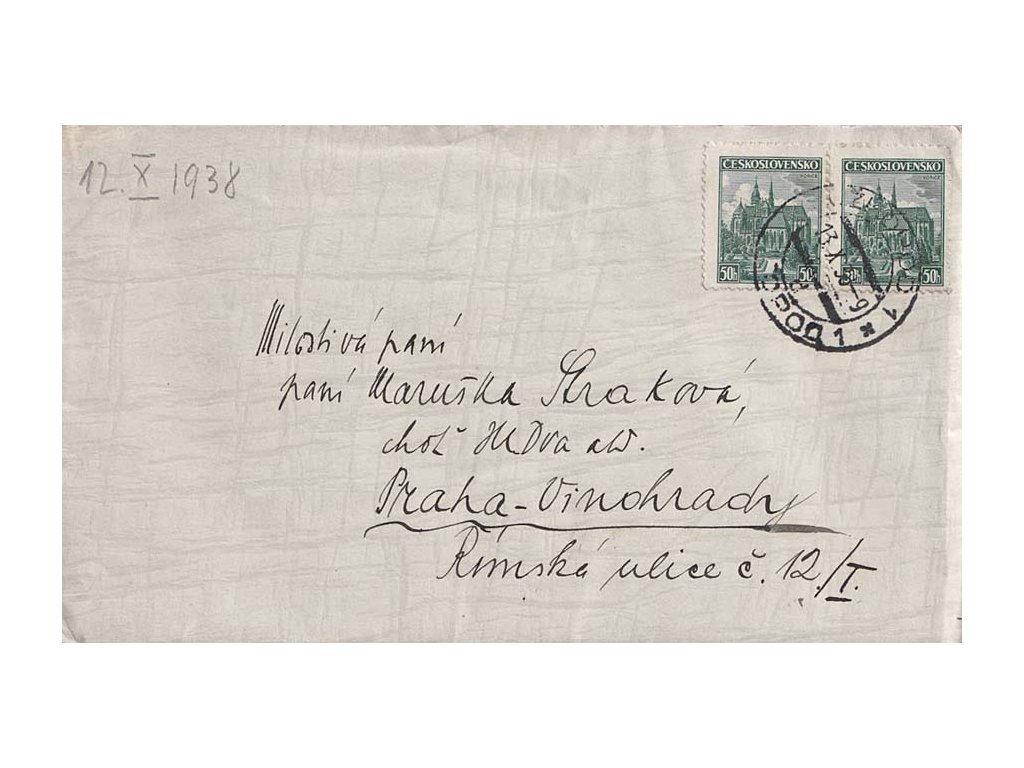 12. X 1938
ČESKOSLOVENSKO ČESKOSLOVENSKO
KOŠICE KOŠICE
50h 50h 50h 50h
Milostivá paní
paní Maruška Straková,
choť JUDra atd.
Praha-Vinohrady
Římská ulice č. 12./I.